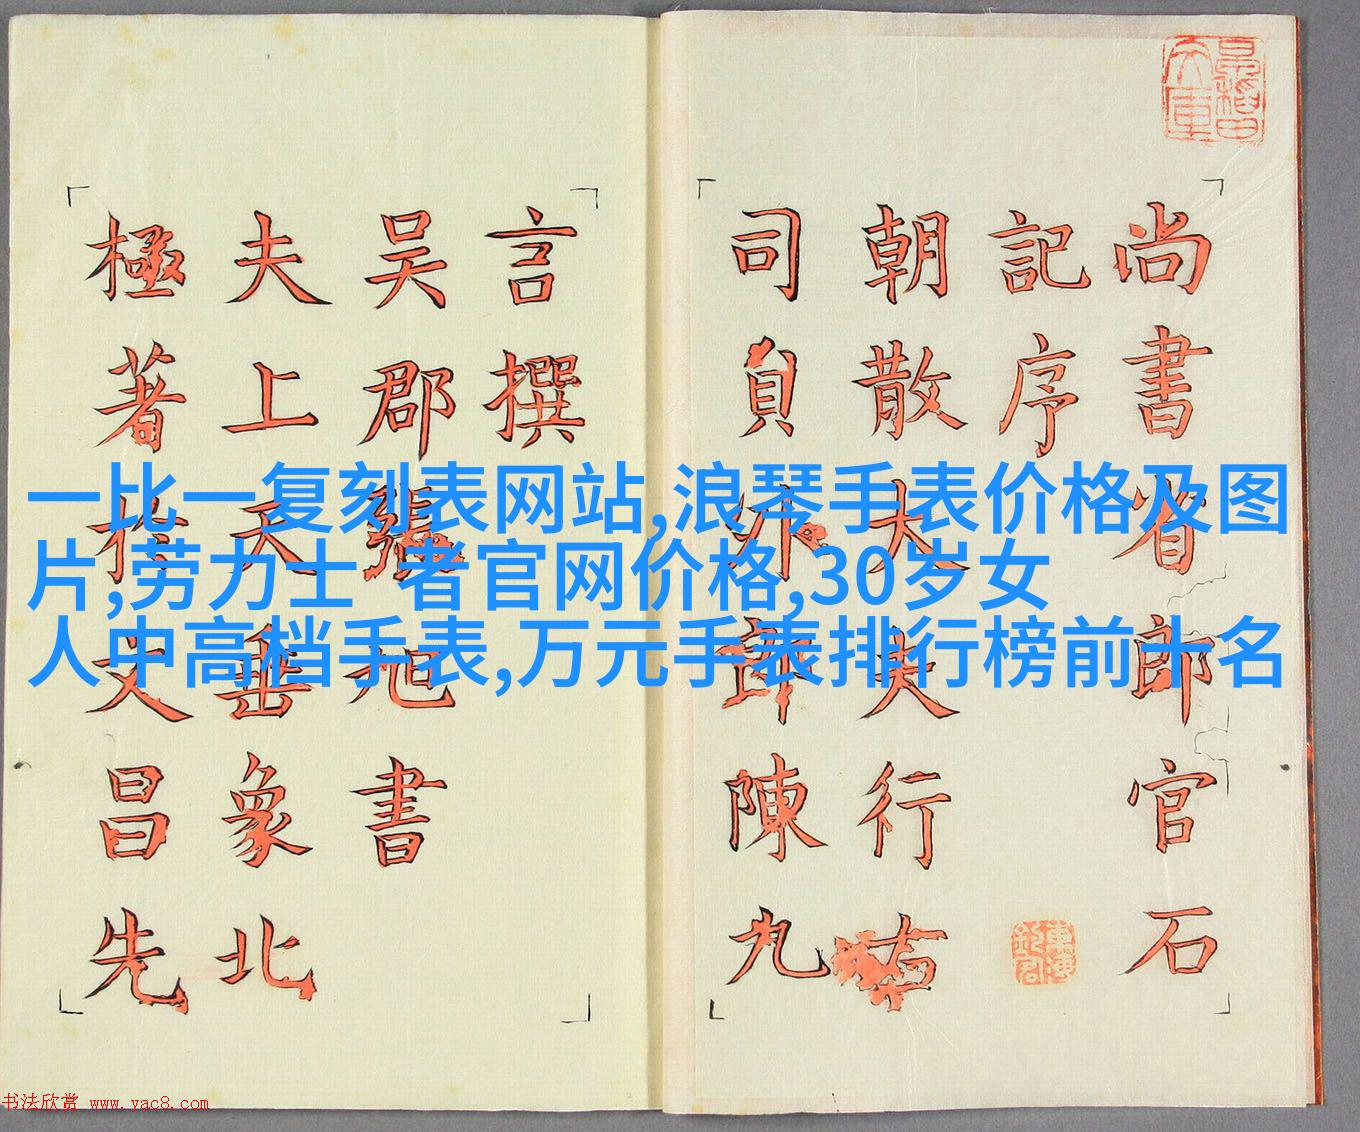 尚書省郎官石
記序
朝散大夫行右
司員外郎陳九
言撰
吴郡張旭書
夫上天垂象北
極著於文昌先
一比一复刻表网站,浪琴手表价格及图
片,劳力士 者官网价格,30岁女
人中高档手表,万元手表排行榜前十名
书法欣赏 www.yac8.com